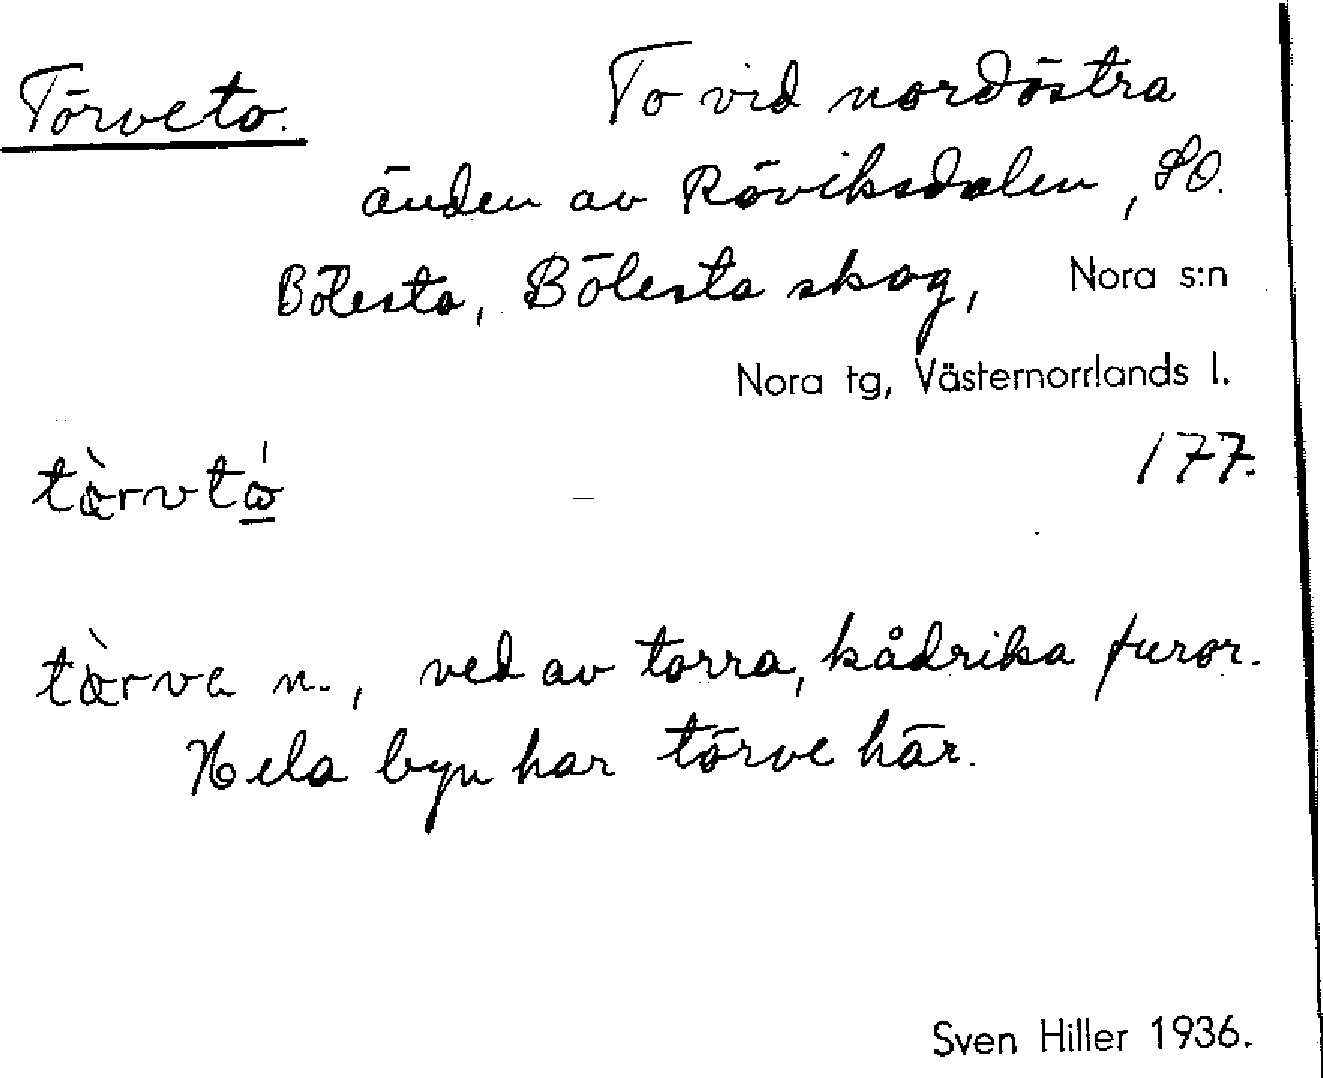 Törveto. To vid nordöstra
änden av Röviksdalen, SO.
Bölesta, Bölesta skog, Nora s:n
Nora tg, Västernorrlands l.
177.
ved av torra, kådrika furor.
Hela byn har törve här.
Sven Hiller 1936.